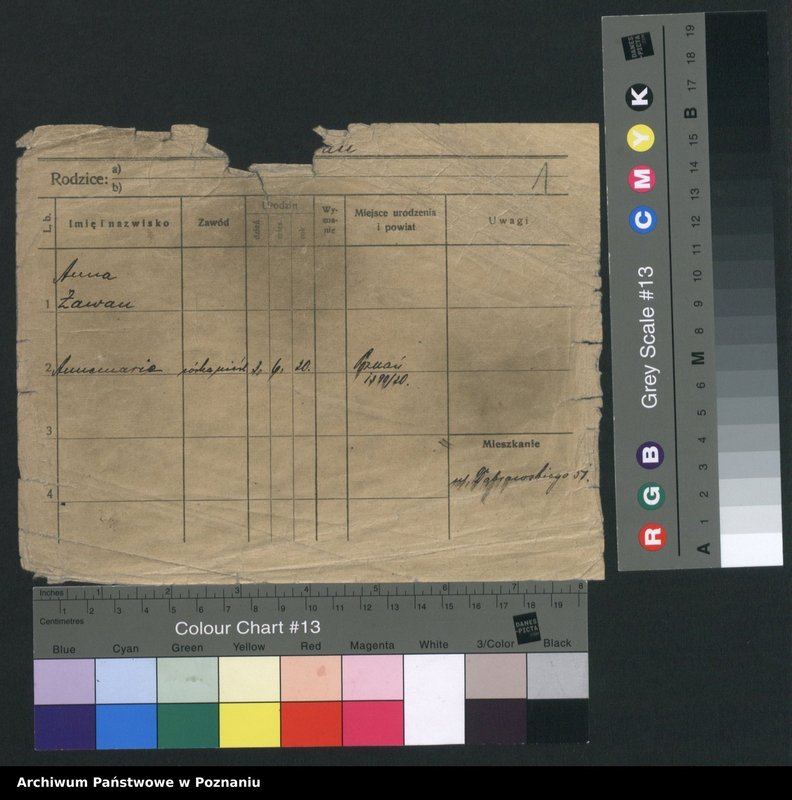 Rodzice: a)
b)
1
L. b. Imię i nazwisko Zawód Urodzin Wy- zna- nie Miejsce urodzenia i powiat Uwagi
dzień mies. rok
Anna
1 Żawan
2 Annamaria 2. 6. 20. Poznań
1390/20.
3
Mieszkanie
ul. Dąbrowskiego 51.
4
DANES PICTA .COM
A 1 2 3 4 5 6 M 8 9 10 11 12 13 14 15 B 17 18 19
R G B Grey Scale #13 C M Y K
Inches 1 2 3 4 5 6 7 8
Centimetres 1 2 3 4 5 6 7 8 9 10 11 12 13 14 15 16 17 18 19
Colour Chart #13
DANES PICTA .COM
Blue Cyan Green Yellow Red Magenta White 3/Color Black
Archiwum Państwowe w Poznaniu